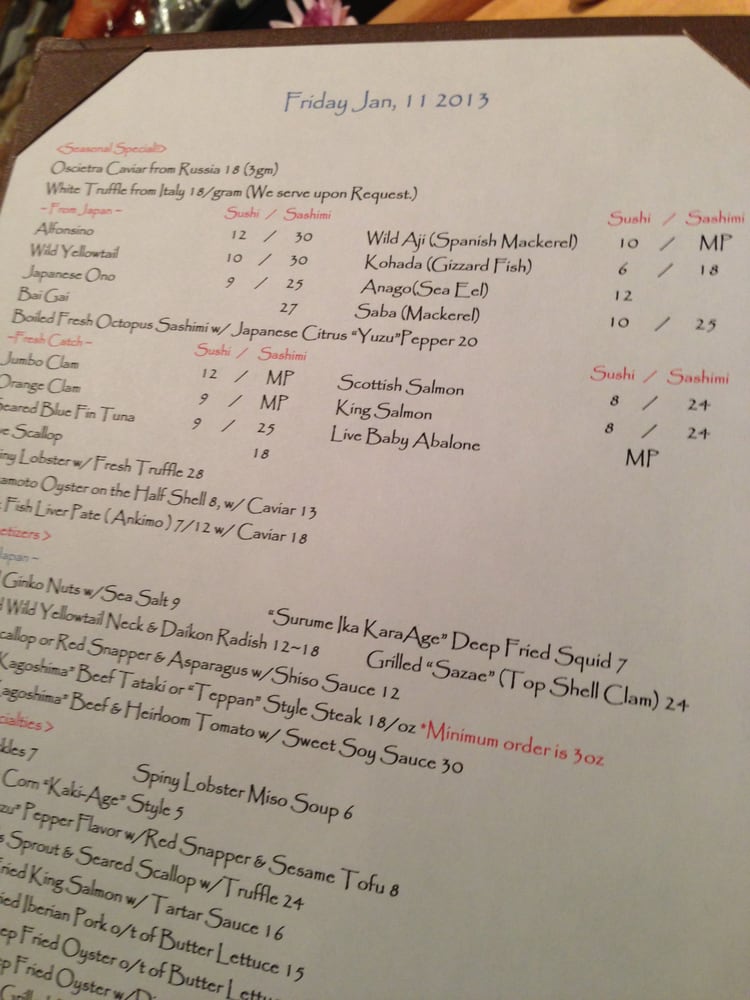 Friday Jan, 11 2013
<Seasonal Special>
Oscietra Caviar from Russia 18 (3gm)
White Truffle from Italy 18/gram (We serve upon Request.)
~From Japan~ Sushi / Sashimi Sushi / Sashimi
Alfonsino 12 / 30 Wild Aji (Spanish Mackerel) 10 / MP
Wild Yellowtail 10 / 30 Kohada (Gizzard Fish) 6 / 18
Japanese Ono 9 / 25 Anago(Sea Eel) 12
Bai Gai 27 Saba (Mackerel) 10 / 25
Boiled Fresh Octopus Sashimi w/ Japanese Citrus "Yuzu"Pepper 20
~Fresh Catch~ Sushi / Sashimi Sushi / Sashimi
Jumbo Clam 12 / MP Scottish Salmon 8 / 24
Orange Clam 9 / MP King Salmon 8 / 24
Seared Blue Fin Tuna 9 / 25 Live Baby Abalone MP
Scallop 18
Lobster w/ Fresh Truffle 28
Oyster on the Half Shell 8, w/ Caviar 13
Fish Liver Pate (Ankimo) 7/12 w/ Caviar 18
Japan~
Ginko Nuts w/Sea Salt 9 "Surume Ika KaraAge" Deep Fried Squid 7
Wild Yellowtail Neck & Daikon Radish 12~18 Grilled "Sazae" (Top Shell Clam) 24
or Red Snapper & Asparagus w/Shiso Sauce 12
Kagoshima" Beef Tataki or "Teppan" Style Steak 18/oz *Minimum order is 3oz
Beef & Heirloom Tomato w/ Sweet Soy Sauce 30
7 Spiny Lobster Miso Soup 6
Corn "Kaki-Age" Style 5
Pepper Flavor w/Red Snapper & Sesame Tofu 8
Sprout & Seared Scallop w/Truffle 24
King Salmon w/ Tartar Sauce 16
Iberian Pork o/t of Butter Lettuce 15
Fried Oyster o/t of Butter
Fried Oyster